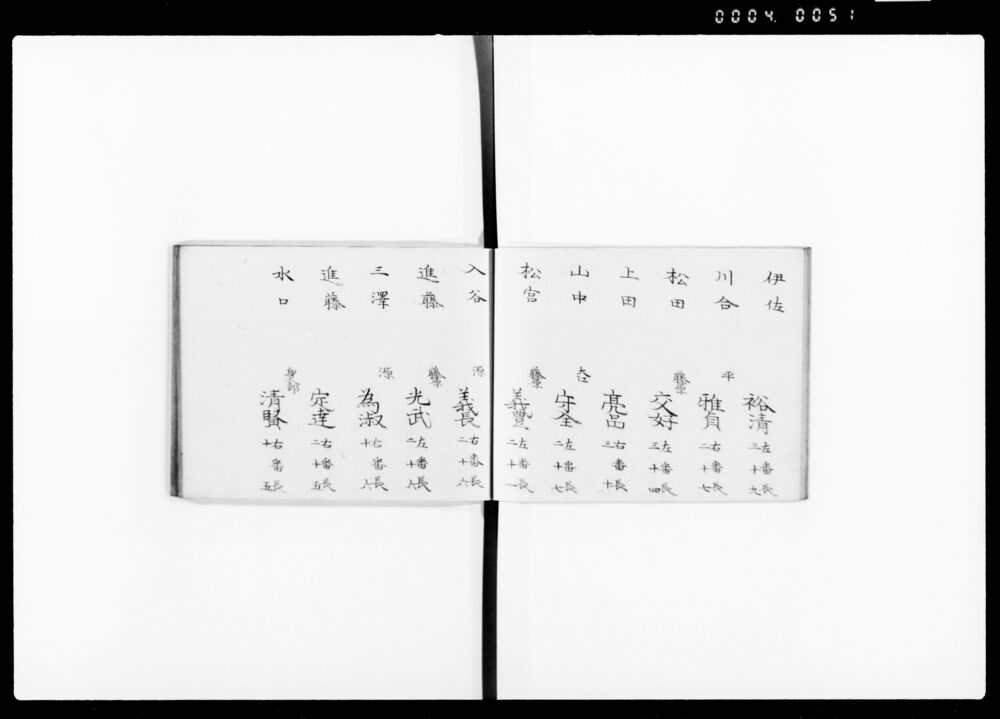 0004 0051
伊佐 裕清 左番長 三十九
川合 平 雅貞 右番長 二十七
松田 藤原 交好 左番長 三十四
上田 亮 右番長 三十
山中 守全 左番長 二十七
松宮 藤原 義 左番長 二十一
入谷 源 義長 右番長 二十六
進藤 藤原 光武 左番長 二十六
三澤 源 為淑 右番長 十六
進藤 定達 右番長 二十五
水口 清賢 右番長 十五